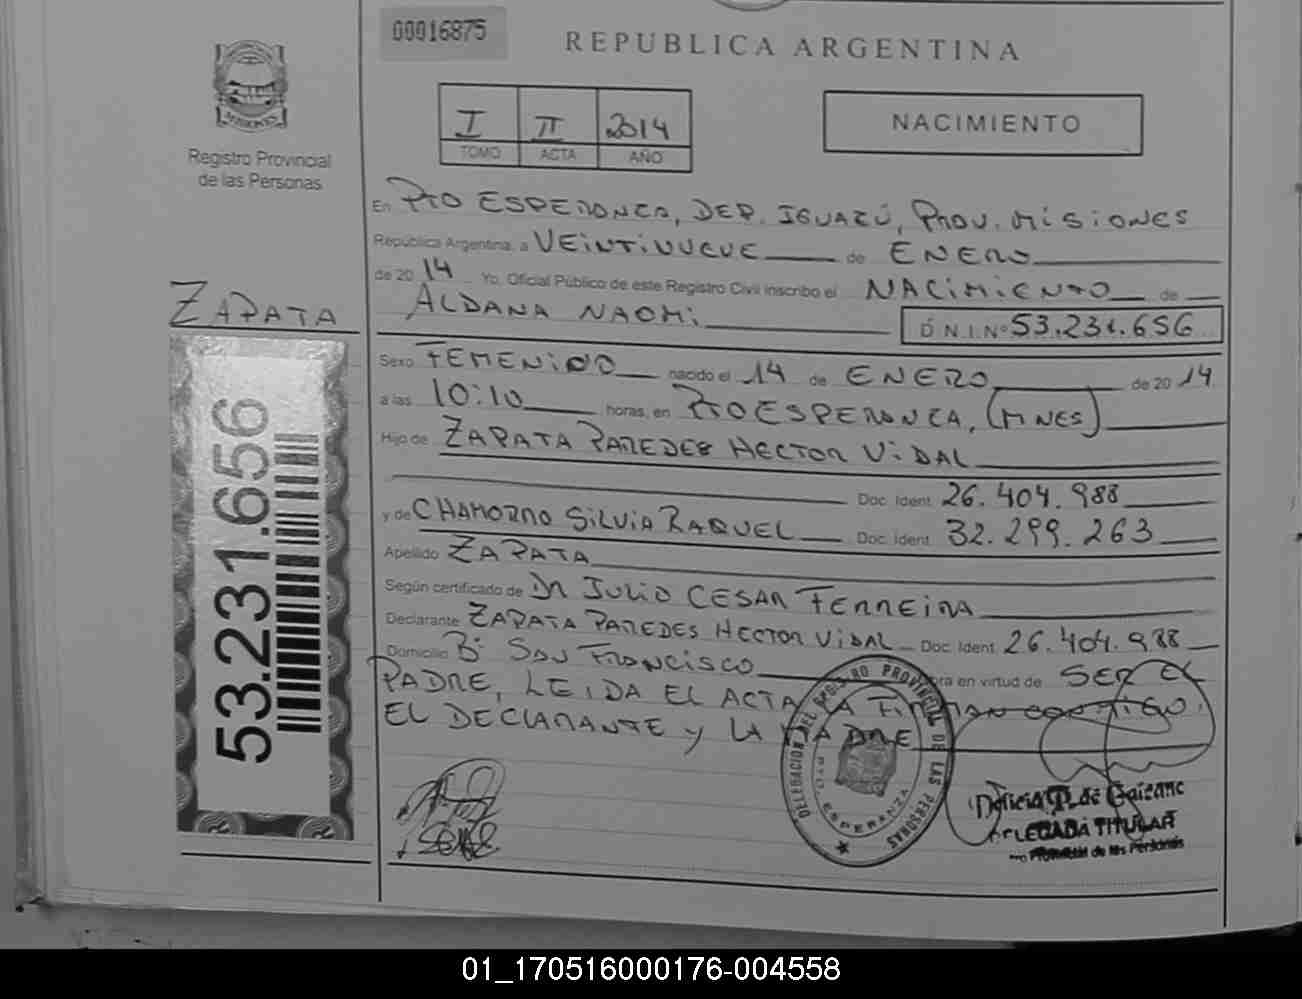 00016875
REPUBLICA ARGENTINA
MISIONES
Registro Provincial
de las Personas
I II 2014
TOMO ACTA AÑO
NACIMIENTO
En PTO ESPERANZA, DEP. IGUAZÚ, PROV. MISIONES
República Argentina, a VEINTINUEVE de ENERO
de 2014 Yo, Oficial Público de este Registro Civil inscribo el NACIMIENTO de
ZAPATA
ALDANA NAOMI
D.N.I. Nº 53.231.656
Sexo FEMENINO nacido el 14 de ENERO de 2014
a las 10:10 horas, en PTO ESPERANZA, (MNES)
Hijo de ZAPATA PAREDES HECTOR VIDAL
Doc. Ident. 26.404.988
y de CHAMORRO SILVIA RAQUEL Doc. Ident. 32.299.263
Apellido ZAPATA
Según certificado de DR JULIO CESAR FERREIRA
Declarante ZAPATA PAREDES HECTOR VIDAL Doc. Ident. 26.404.988
Domicilio Bº SAN FRANCISCO obra en virtud de SER EL
PADRE, LEIDA EL ACTA LA FIRMAN CONMIGO
EL DECLARANTE y LA MADRE
53.231.656
DELEGACION DEL REGISTRO PROVINCIAL DE LAS PERSONAS
PTO. ESPERANZA
DELEGADA TITULAR
de las Personas
01_170516000176-004558